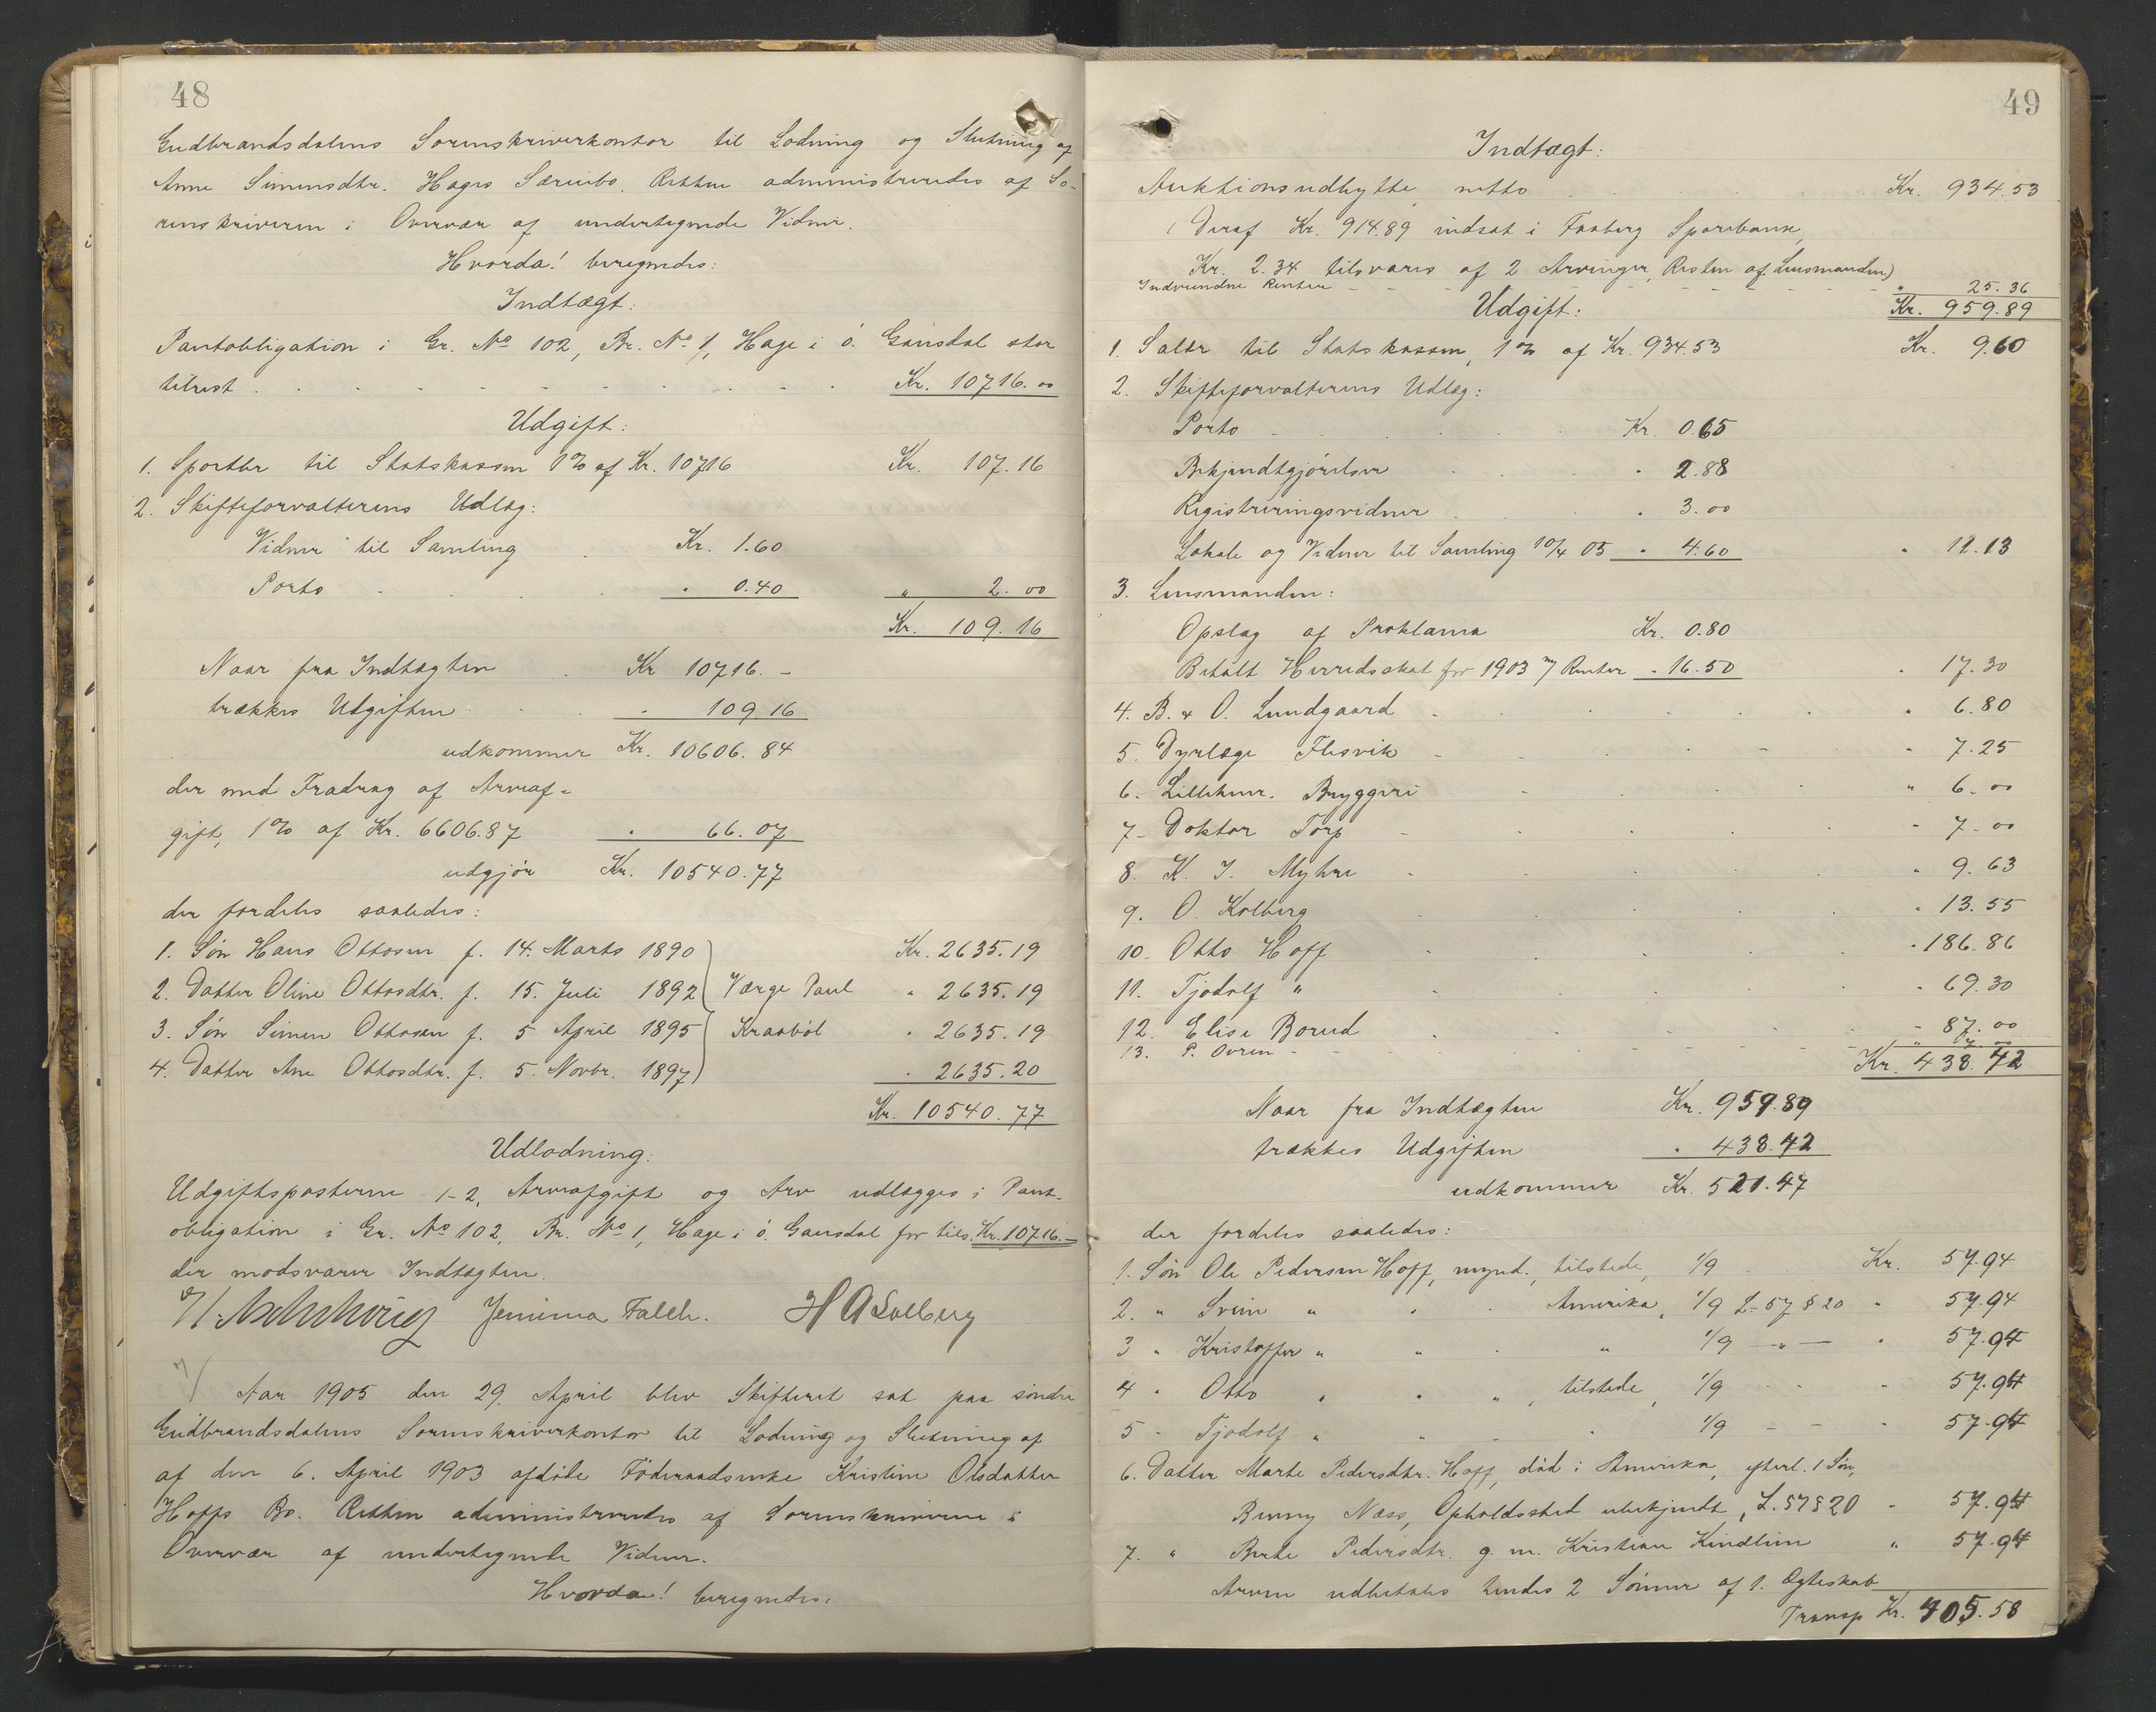 48
Gudbrandsdalens Sorenskriverkontor til Lodning og Slutning af
Anne Simensdtr. Hages Særeiebo. Retten administreredes af So-
renskriveren i Overvær af undertegnede Vidner.
Hvorda! beregnedes:
Indtægt:
Pantobligation i Gr. No 102, Br. No 1, Hage i ö. Gausdal stor
tilrest . . . . . . . . . . Kr. 10716.00
Udgift:
1. Sportler til Statskassen 1% af Kr. 10716 Kr. 107.16
2. Skifteforvalterens Udlæg:
Vidner til Samling . Kr. 1.60
Porto . . . . " 0.40 " 2.00
Kr. 109.16
Naar fra Indtægten . Kr 10716.-
trækkes Udgiften . . " 109.16
udkommer Kr. 10606.84
der med Fradrag af Arveaf-
gift, 1% af Kr. 6606.87 " 66.07
udgjör Kr. 10540.77
der fordeles saaledes:
1. Sön Hans Ottosen f. 14. Marts 1890 Kr. 2635.19
2. Datter Oline Ottosdtr. f. 15. Juli 1892 Værge Paul " 2635.19
3. Sön Simen Ottosen f. 5 April 1895 Kraaböl " 2635.19
4. Datter Ane Ottosdtr. f. 5. Novbr. 1897 " 2635.20
Kr. 10540.77
Udlodning:
Udgiftsposterne 1-2, Arveafgift og Arv udlægges i Pant-
obligation i Gr. No 102, Br. No 1, Hage i ö. Gausdal for tils. Kr. 10716.-
der modsvarer Indtægten.
Jemima Falch. H A Solberg
Aar 1905 den 29. April blev Skifteret sat paa söndre
Gudbrandsdalens Sorenskriverkontor til Lodning og Slutning af
af den 6. April 1903 afdöde Föderaadsenke Kristine Olsdatter
Hoffs Bo. Retten administreredes af Sorenskriveren i
Overvær af undertegnede Vidner.
Hvorda! beregnedes:
49
Indtægt:
Auktionsudbytte, netto . . . Kr. 934.53
(Deraf Kr. 914.89 indsat i Faaberg Sparebank,
Kr. 2.34 tilsvares af 2 Arvinger, Resten af Lensmanden)
Indvundne Renter - - - - - - " 25.36
Udgift: Kr. 959.89
1. Saltr til Statskassen, 1% af Kr. 934.53 Kr. 9.60
2. Skifteforvalterens Udlæg:
Porto - . . . Kr. 0.65
Bekjendtgjörelser . . . " 2.88
Registreringsvidner . . " 3.00
Lokale og Vidner til Samling 10/4 05 " 4.60 " 11.13
3. Lensmanden:
Opslag af Proklama Kr. 0.80
Betalt Herredsskat for 1903 m/ Renter " 16.50 " 17.30
4. B. & O. Lundgaard . . . . . " 6.80
5. Dyrlæge Flesvik . . . . . " 7.25
6. Lillehmr. Bryggeri . . . . " 6.00
7. Doktor Torp . . . . . " 7.00
8. K. J. Myhre . . . . . " 9.63
9. O. Kolberg . . . . . " 13.55
10. Otto Hoff . . . . . " 186.86
11. Tjodolf " . . . . . " 69.30
12. Elise Borud . . . . . " 87.00
13. P. Ovren - - - - - - "
Kr. 438.42
Naar fra Indtægten Kr. 959.89
trækkes Udgiften " 438.42
udkommer Kr. 521.47
der fordeles saaledes:
1. Sön Ole Pedersen Hoff, mynd., tilstede, 1/9 Kr. 57.94
2. " Svein " " " Amerika, 1/9 L. 57 § 20 " 57.94
3 " Kristoffer " " " " 1/9 -"- " 57.94
4 " Otto " " " , tilstede, 1/9 - - " 57.94
5 " Tjodolf " " " " 1/9 - - " 57.94
6. Datter Marte Pedersdtr. Hoff, död i Amerika, efterl. 1 Sön,
Benny Næss, Opholdssted ubekjendt, L. 57 § 20 " 57.94
7. " Berte Pedersdtr. g. m. Kristian Kindlien " 57.94
Arven udbetales hendes 2 Sönner af 1. Ægteskab
Transp Kr. 405.58